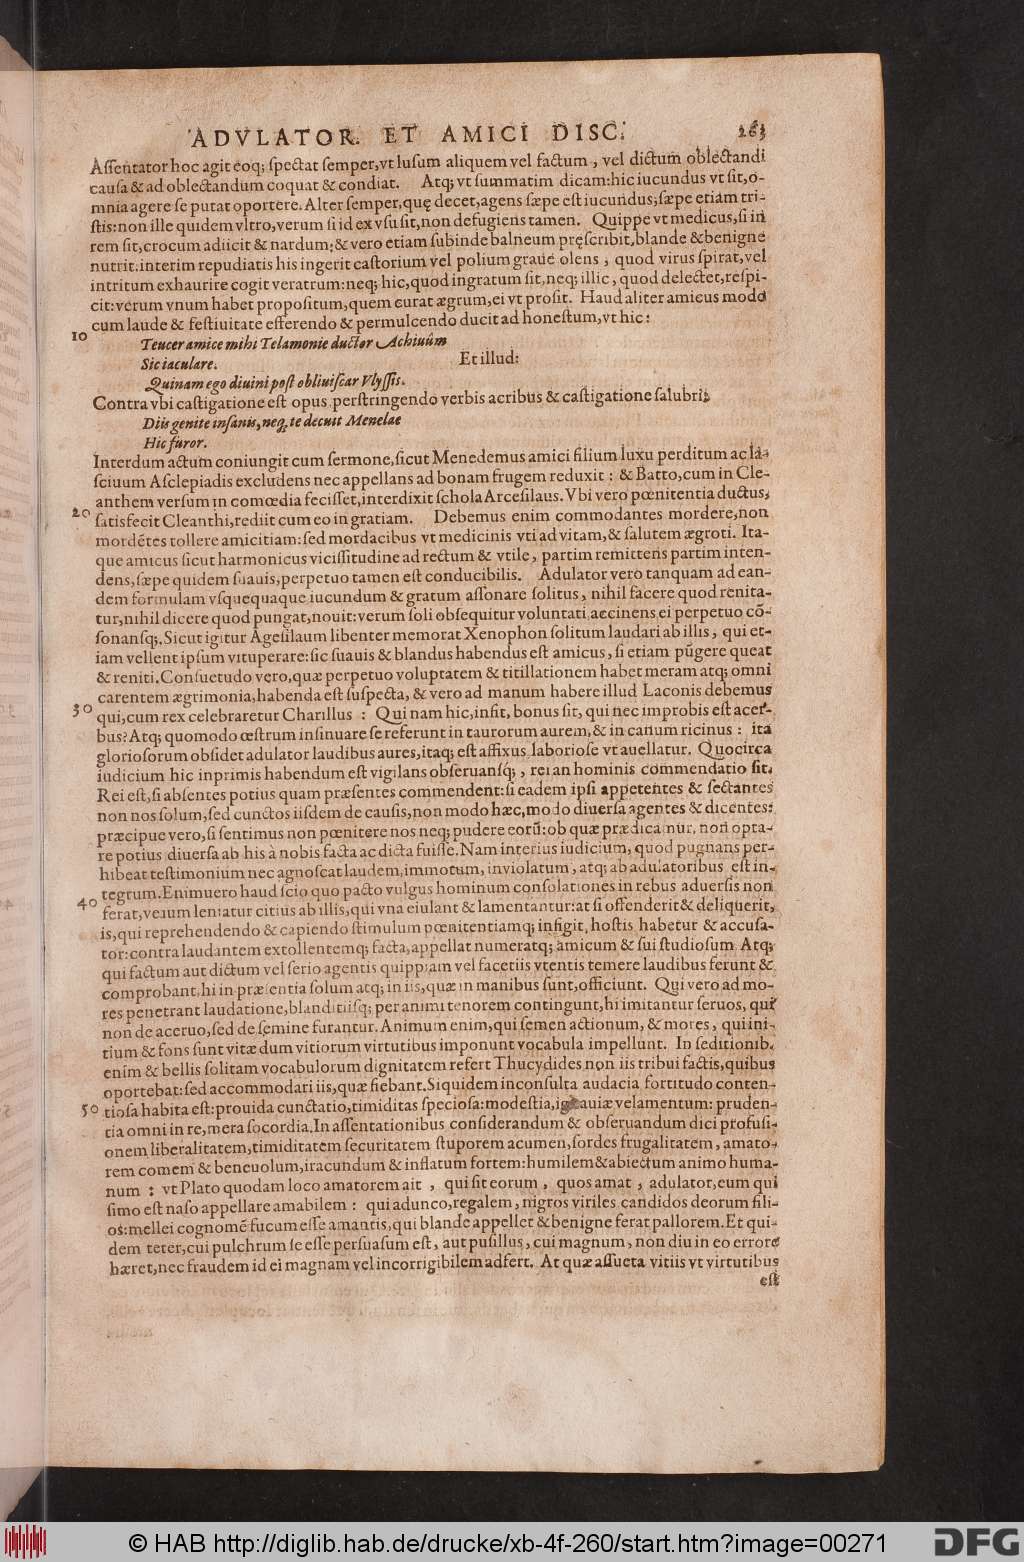 ADVLATOR. ET AMICI DISC. 263
Aſſentator hoc agit eoq; ſpectat ſemper, vt luſum aliquem vel factum, vel dictum oblectandi
cauſa & ad oblectandum coquat & condiat. Atq; vt ſummatim dicam: hic iucundus vt ſit, o-
mnia agere ſe putat oportere. Alter ſemper, quę decet, agens ſæpe eſt iucundus; ſæpe etiam tri-
ſtis: non ille quidem vltro, verum ſi id ex vſu ſit, non defugiens tamen. Quippe vt medicus, ſi in
rem ſit, crocum adiicit & nardum: & vero etiam ſubinde balneum pręſcribit, blande & benigne
nutrit: interim repudiatis his ingerit caſtorium vel polium graue olens, quod virus ſpirat, vel
intritum exhaurire cogit veratrum: neq; hic, quod ingratum ſit, neq; illic, quod delectet, reſpi-
cit: verum vnum habet propoſitum, quem curat ægrum, ei vt proſit. Haud aliter amicus modo
cum laude & feſtiuitate efferendo & permulcendo ducit ad honeſtum, vt hic:
10 Teucer amice mihi Telamonie ductor Achiuûm
Sic iaculare. Et illud:
Quinam ego diuini poſt obliuiſcar Vlyſſis.
Contra vbi caſtigatione eſt opus perſtringendo verbis acribus & caſtigatione ſalubri;
Diis genite inſanis, neq; te decuit Menelae
Hic furor.
Interdum actum coniungit cum ſermone, ſicut Menedemus amici filium luxu perditum ac la-
ſciuum Aſclepiadis excludens nec appellans ad bonam frugem reduxit: & Batto, cum in Cle-
anthem verſum in comœdia feciſſet, interdixit ſchola Arceſilaus. Vbi vero pœnitentia ductus,
20 ſatisfecit Cleanthi, rediit cum eo in gratiam. Debemus enim commodantes mordere, non
mordẽtes tollere amicitiam: ſed mordacibus vt medicinis vti ad vitam, & ſalutem ægroti. Ita-
que amicus ſicut harmonicus viciſſitudine ad rectum & vtile, partim remittens partim inten-
dens, ſæpe quidem ſuauis, perpetuo tamen eſt conducibilis. Adulator vero tanquam ad ean-
dem formulam vſquequaque iucundum & gratum aſſonare ſolitus, nihil facere quod renita-
tur, nihil dicere quod pungat, nouit: verum ſoli obſequitur voluntati accinens ei perpetuo cõ-
ſonansq;. Sicut igitur Ageſilaum libenter memorat Xenophon ſolitum laudari ab illis, qui et-
iam vellent ipſum vituperare: ſic ſuauis & blandus habendus eſt amicus, ſi etiam pũgere queat
& reniti. Conſuetudo vero, quæ perpetuo voluptatem & titillationem habet meram atq; omni
carentem ægrimonia, habenda eſt ſuſpecta, & vero ad manum habere illud Laconis debemus
30 qui, cum rex celebraretur Charillus: Qui nam hic, inſit, bonus ſit, qui nec improbis eſt acer-
bus? Atq; quomodo œſtrum inſinuare ſe referunt in taurorum aurem, & in canum ricinus: ita
glorioſorum obſidet adulator laudibus aures, itaq; eſt affixus laborioſe vt auellatur. Quocirca
iudicium hic inprimis habendum eſt vigilans obſeruansq́;, rei an hominis commendatio ſit.
Rei eſt, ſi abſentes potius quam præſentes commendent: ſi eadem ipſi appetentes & ſectantes
non nos ſolum, ſed cunctos iiſdem de cauſis, non modo hæc, modo diuerſa agentes & dicentes:
præcipue vero, ſi ſentimus non pœnitere nos neq; pudere eorũ: ob quæ prædicamur, non opta-
re potius diuerſa ab his à nobis facta ac dicta fuiſſe. Nam interius iudicium, quod pugnans per-
hibeat teſtimonium nec agnoſcat laudem, immotum, inuiolatum, atq; ab adulatoribus eſt in-
tegrum. Enimuero haud ſcio quo pacto vulgus hominum conſolationes in rebus aduerſis non
40 ferat, verum leniatur citius ab illis, qui vna eiulant & lamentantur: at ſi offenderit & deliquerit,
is, qui reprehendendo & capiendo ſtimulum pœnitentiamq; infigit, hoſtis habetur & accuſa-
tor: contra laudantem extollentemq; facta, appellat numeratq; amicum & ſui ſtudioſum. Atq;
qui factum aut dictum vel ſerio agentis quippiam vel facetiis vtentis temere laudibus ferunt &
comprobant, hi in præſentia ſolum atq; in iis, quæ in manibus ſunt, officiunt. Qui vero ad mo-
res penetrant laudatione, blanditiisq; per animi tenorem contingunt, hi imitantur ſeruos, qui
non de aceruo, ſed de ſemine furantur. Animum enim, qui ſemen actionum, & mores, qui ini-
tium & fons ſunt vitæ dum vitiorum virtutibus imponunt vocabula impellunt. In ſeditionib.
enim & bellis ſolitam vocabulorum dignitatem refert Thucydides non iis tribui factis, quibus
oportebat: ſed accommodari iis, quæ fiebant. Siquidem inconſulta audacia fortitudo conten-
50 tioſa habita eſt: prouida cunctatio, timiditas ſpecioſa: modeſtia, ignauiæ velamentum: pruden-
tia omni in re, mera ſocordia. In aſſentationibus conſiderandum & obſeruandum dici profuſi-
onem liberalitatem, timiditatem ſecuritatem ſtuporem acumen, ſordes frugalitatem, amato-
rem comem & beneuolum, iracundum & inflatum fortem: humilem & abiectum animo huma-
num: vt Plato quodam loco amatorem ait, qui ſit eorum, quos amat, adulator, eum qui
ſimo eſt naſo appellare amabilem: qui adunco, regalem, nigros viriles candidos deorum fili-
os: mellei cognomẽ fucum eſſe amantis, qui blande appellet & benigne ferat pallorem. Et qui-
dem teter, cui pulchrum ſe eſſe perſuaſum eſt, aut puſillus, cui magnum, non diu in eo errore
hæret, nec fraudem id ei magnam vel incorrigibilem adfert. At quæ aſſueta vitiis vt virtutibus
eſt
© HAB http://diglib.hab.de/drucke/xb-4f-260/start.htm?image=00271
DFG